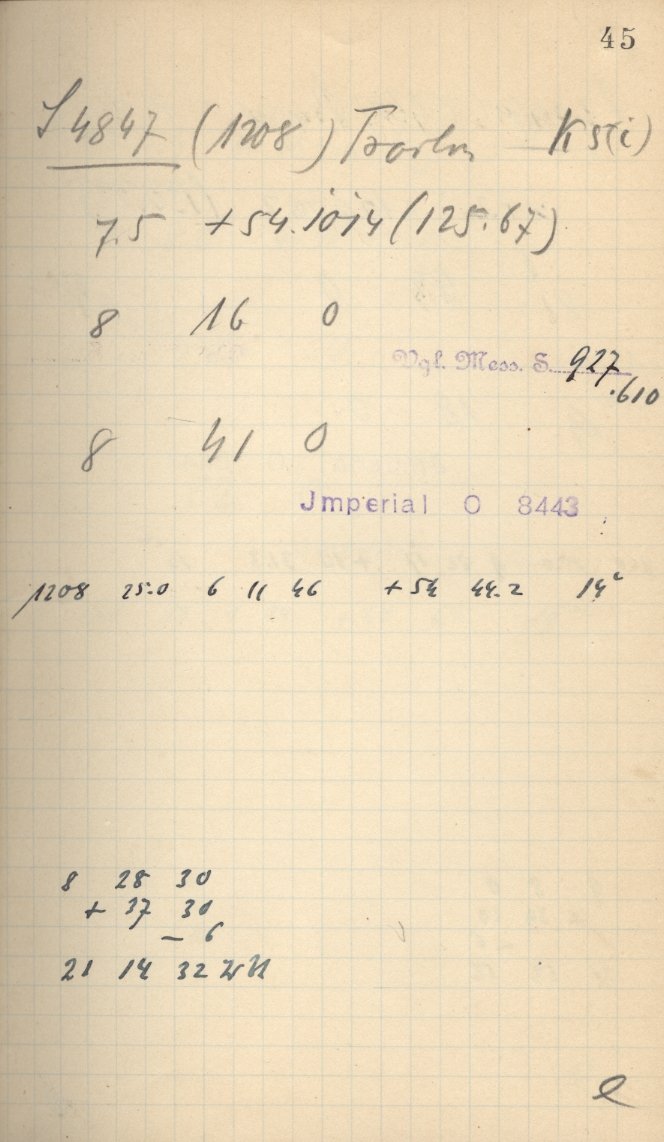 45
S 4847 (1208) Troilus K5(i)
7.5 +54.1014 (125.67)
8 16 0
Vgl. Mess. S. 927
.610
8 41 0
Jmperial O 8443
1208 25.0 6 11 46 +54 44.2 14
8 28 30
+ 37 30
– 6
21 14 32